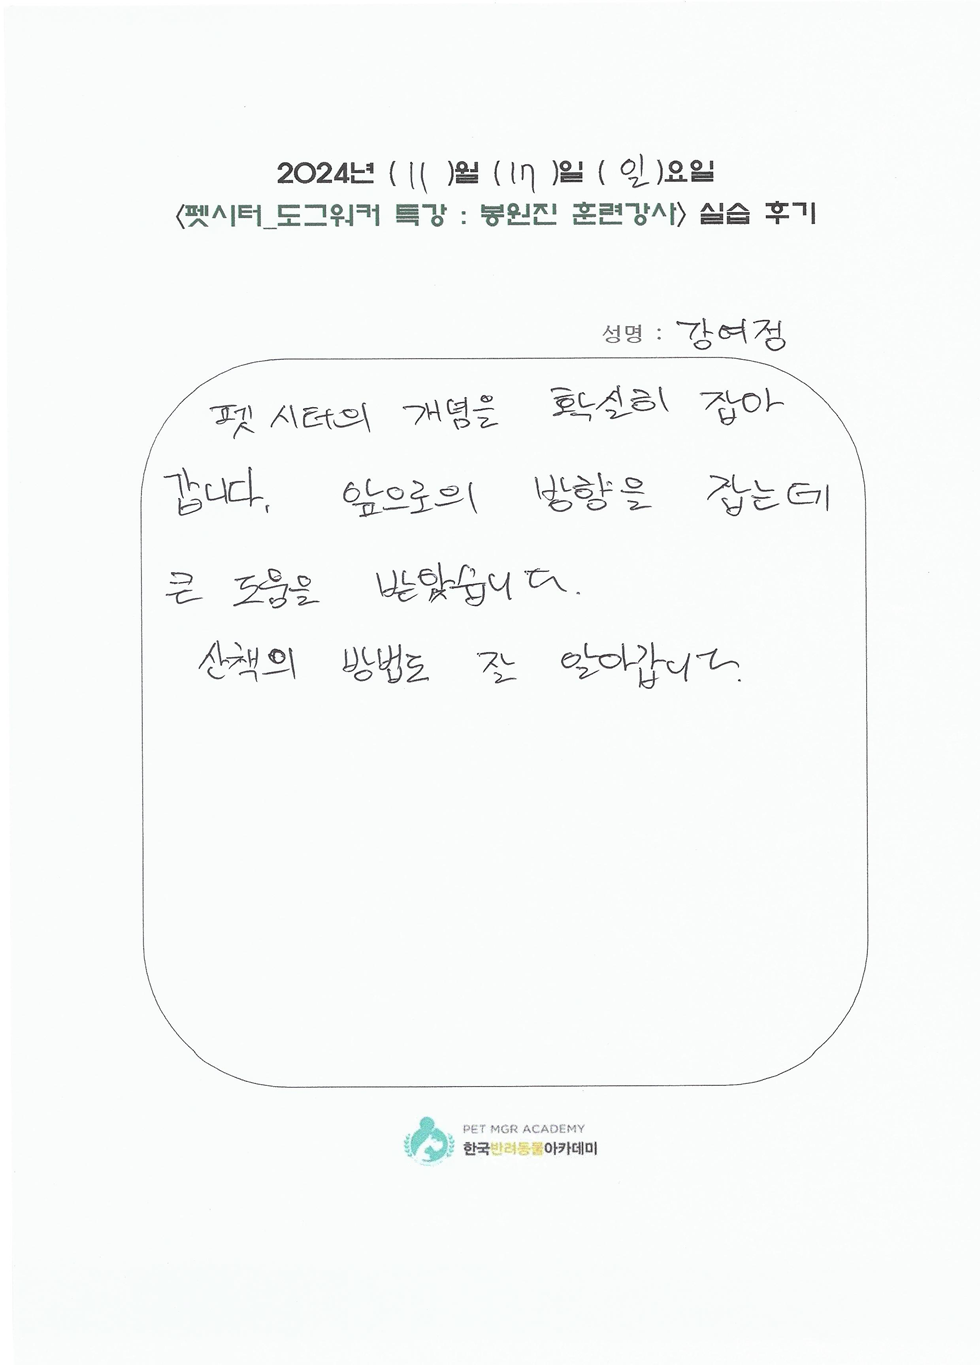 2024년 ( 11 )월 ( 17 )일 ( 일 )요일
<펫시터_도그워커 특강 : 봉원진 훈련강사> 실습 후기
성명 : 강여정
펫시터의 개념을 확실히 잡아
갑니다. 앞으로의 방향을 잡는데
큰 도움을 받았습니다.
산책의 방법도 잘 알아갑니다.
PET MGR ACADEMY
한국반려동물아카데미